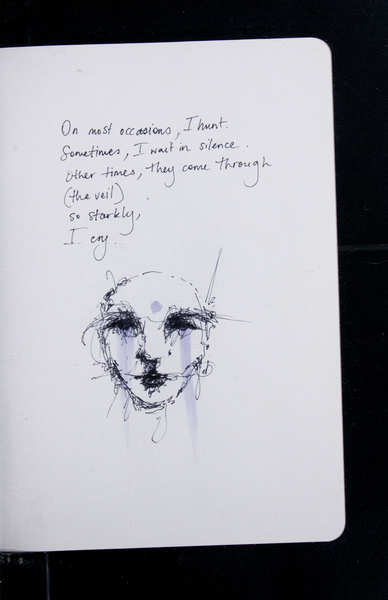 On most occasions, I hunt.
Sometimes, I wait in silence.
Other times, they come through
(the veil)
so starkly,
I cry.